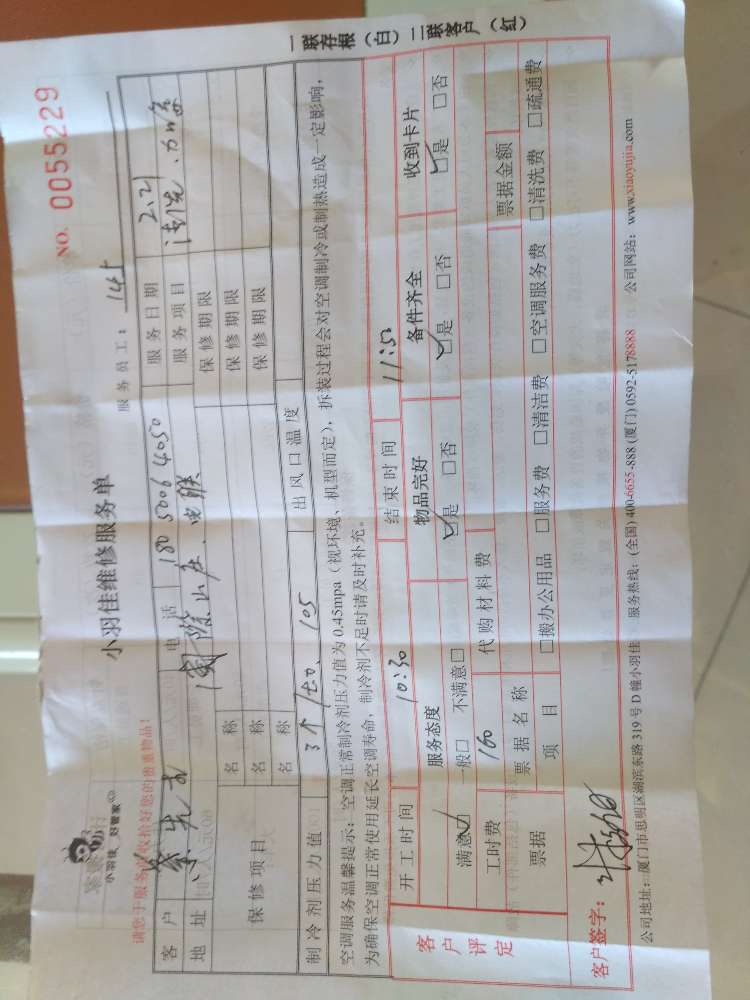 小羽佳 好管家
小羽佳维修服务单
NO. 0055229
请您于服务 收检好您的贵重物品!
服务员工: 145
客户 电话 180 5006 4050 服务日期 2.21
地址 服务项目 清洗
保修项目 名称 保修期限
名称 保修期限
名称 保修期限
制冷剂压力值 出风口温度
空调服务温馨提示:空调正常制冷剂压力值为 0.45mpa(视环境、机型而定),拆装过程会对空调制冷或制热造成一定影响,
为确保空调正常使用延长空调寿命,制冷剂不足时请及时补充。
开工时间 10:30 结束时间 11:50
客户评定 服务态度 物品完好 备件齐全 收到卡片
满意☑ 一般□ 不满意□ ☑是 □否 ☑是 □否 ☑是 □否
工时费 160 代购材料费
票据 票据名称 票据金额
项目 □搬办公用品 □服务费 □清洁费 □空调服务费 □清洗费 □疏通费
客户签字:
公司地址:厦门市思明区湖滨东路 319 号 D 幢小羽佳 服务热线:(全国) 400-6655-888 (厦门) 0592-5178888 公司网站:www.xiaoyujia.com
一联存根(白)二联客户(红)